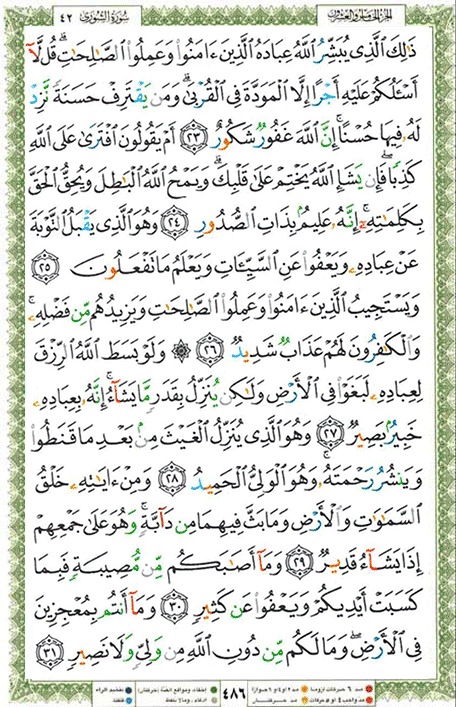 الجزء الخامس والعشرون
سورة الشورى ٤٢
ذَٰلِكَ ٱلَّذِى يُبَشِّرُ ٱللَّهُ عِبَادَهُ ٱلَّذِينَ ءَامَنُوا۟ وَعَمِلُوا۟ ٱلصَّـٰلِحَـٰتِ ۗ قُل لَّآ
أَسْـَٔلُكُمْ عَلَيْهِ أَجْرًا إِلَّا ٱلْمَوَدَّةَ فِى ٱلْقُرْبَىٰ ۗ وَمَن يَقْتَرِفْ حَسَنَةً نَّزِدْ
لَهُۥ فِيهَا حُسْنًا ۚ إِنَّ ٱللَّهَ غَفُورٌ شَكُورٌ ٢٣ أَمْ يَقُولُونَ ٱفْتَرَىٰ عَلَى ٱللَّهِ
كَذِبًا ۖ فَإِن يَشَإِ ٱللَّهُ يَخْتِمْ عَلَىٰ قَلْبِكَ ۗ وَيَمْحُ ٱللَّهُ ٱلْبَـٰطِلَ وَيُحِقُّ ٱلْحَقَّ
بِكَلِمَـٰتِهِۦٓ ۚ إِنَّهُۥ عَلِيمٌۢ بِذَاتِ ٱلصُّدُورِ ٢٤ وَهُوَ ٱلَّذِى يَقْبَلُ ٱلتَّوْبَةَ
عَنْ عِبَادِهِۦ وَيَعْفُوا۟ عَنِ ٱلسَّيِّـَٔاتِ وَيَعْلَمُ مَا تَفْعَلُونَ ٢٥
وَيَسْتَجِيبُ ٱلَّذِينَ ءَامَنُوا۟ وَعَمِلُوا۟ ٱلصَّـٰلِحَـٰتِ وَيَزِيدُهُم مِّن فَضْلِهِۦ ۚ
وَٱلْكَـٰفِرُونَ لَهُمْ عَذَابٌ شَدِيدٌ ٢٦ ۞ وَلَوْ بَسَطَ ٱللَّهُ ٱلرِّزْقَ
لِعِبَادِهِۦ لَبَغَوْا۟ فِى ٱلْأَرْضِ وَلَـٰكِن يُنَزِّلُ بِقَدَرٍ مَّا يَشَآءُ ۚ إِنَّهُۥ بِعِبَادِهِۦ
خَبِيرٌۢ بَصِيرٌ ٢٧ وَهُوَ ٱلَّذِى يُنَزِّلُ ٱلْغَيْثَ مِنۢ بَعْدِ مَا قَنَطُوا۟
وَيَنشُرُ رَحْمَتَهُۥ ۚ وَهُوَ ٱلْوَلِىُّ ٱلْحَمِيدُ ٢٨ وَمِنْ ءَايَـٰتِهِۦ خَلْقُ
ٱلسَّمَـٰوَٰتِ وَٱلْأَرْضِ وَمَا بَثَّ فِيهِمَا مِن دَآبَّةٍ ۚ وَهُوَ عَلَىٰ جَمْعِهِمْ
إِذَا يَشَآءُ قَدِيرٌ ٢٩ وَمَآ أَصَـٰبَكُم مِّن مُّصِيبَةٍ فَبِمَا
كَسَبَتْ أَيْدِيكُمْ وَيَعْفُوا۟ عَن كَثِيرٍ ٣٠ وَمَآ أَنتُم بِمُعْجِزِينَ
فِى ٱلْأَرْضِ ۖ وَمَا لَكُم مِّن دُونِ ٱللَّهِ مِن وَلِىٍّ وَلَا نَصِيرٍ ٣١
٤٨٦